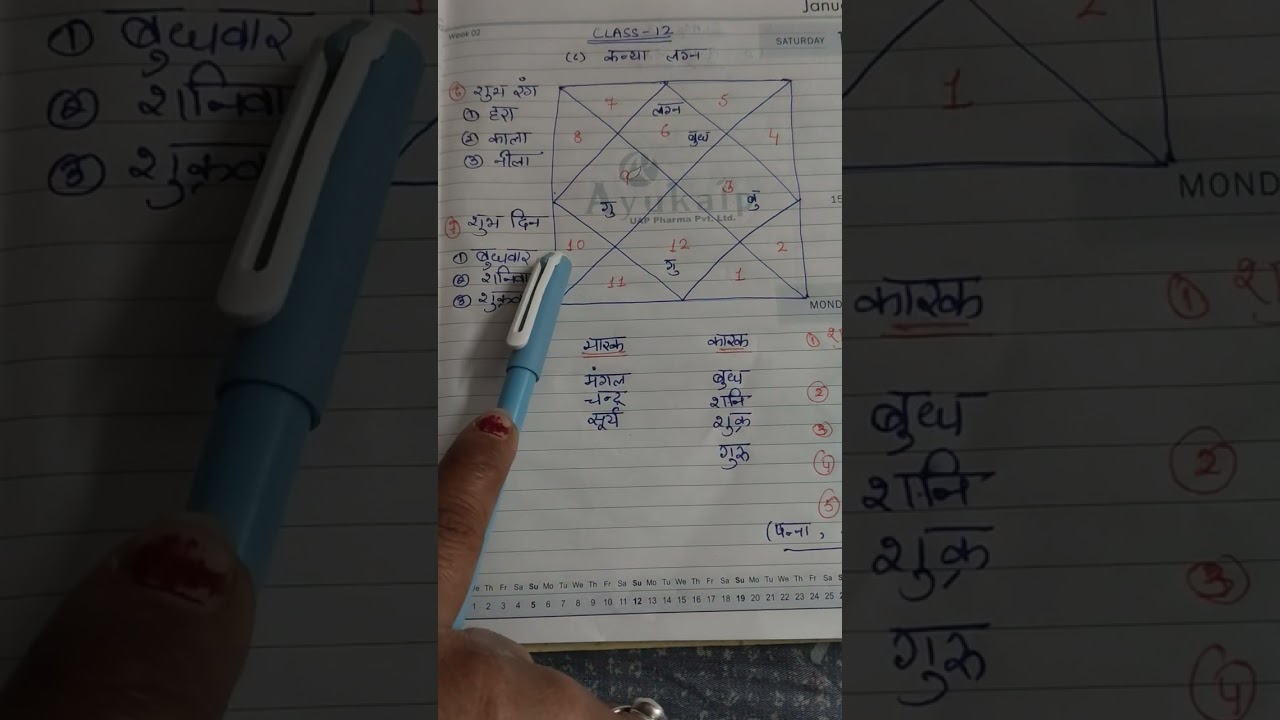 Janu
Week 02
CLASS-12
SATURDAY
(c) कन्या लग्न
⑥ शुभ रंग
① हरा
② काला
③ नीला
7
लग्न
5
8
6
बुध
4
9
3
गु
बु
Ayukalp
UAP Pharma Pvt. Ltd.
15
⑦ शुभ दिन
① बुधवार
② शनिवा
③ शुक्रव
10
12
2
गु
11
1
MOND
मारक
कारक
①
मंगल
बुध
चन्द्र
शनि
②
सूर्य
शुक्र
③
गुरु
④
⑤
(पन्ना,
We Th Fr Sa Su Mo Tu We Th Fr Sa Su Mo Tu We Th Fr Sa Su Mo Tu We Th Fr Sa
1 2 3 4 5 6 7 8 9 10 11 12 13 14 15 16 17 18 19 20 21 22 23 24 25
① बुधवार
② शनिवा
③ शुक्रव
2
1
MOND
कारक
①
बुध
②
शनि
शुक्र
③
गुरु
④